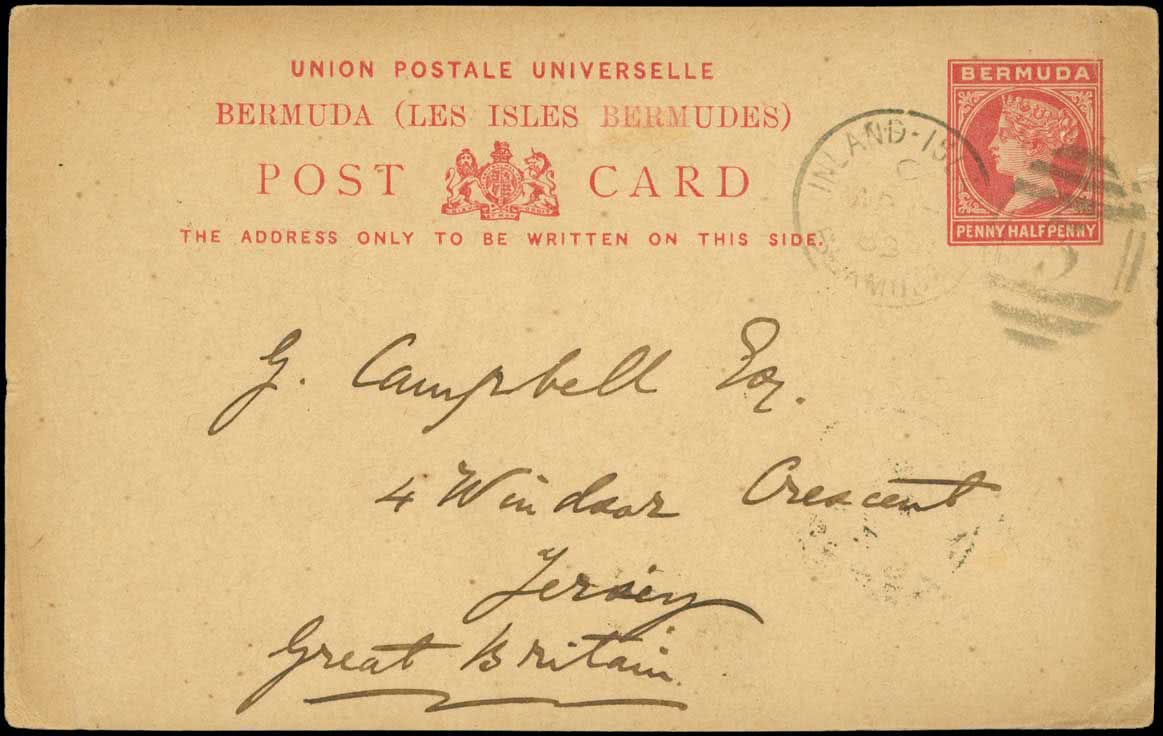 UNION POSTALE UNIVERSELLE
BERMUDA (LES ISLES BERMUDES)
POST CARD
THE ADDRESS ONLY TO BE WRITTEN ON THIS SIDE.
BERMUDA
PENNY HALFPENNY
INLAND-IS
G. Campbell Esq.
4 Windsor Crescent
Jersey
Great Britain